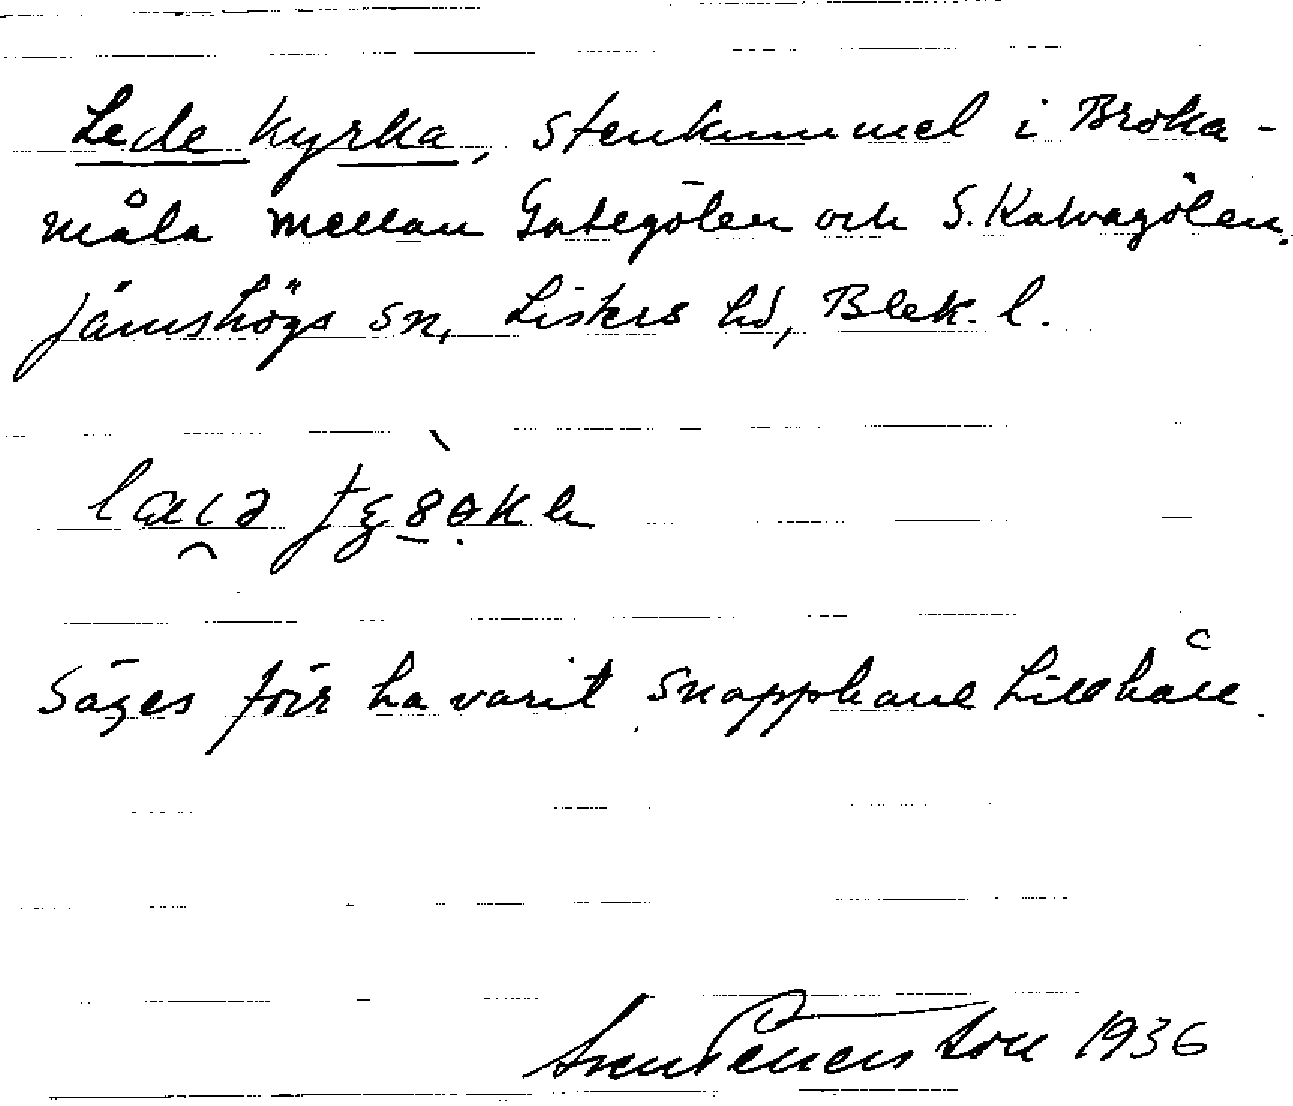 Lede kyrka, stenkummel i Broka-
måla mellan Gategölen och S. Kalvagölen,
Jämshögs sn, Listers hd, Blek. l.
Säges förr ha varit snapphane tillhåll.
1936